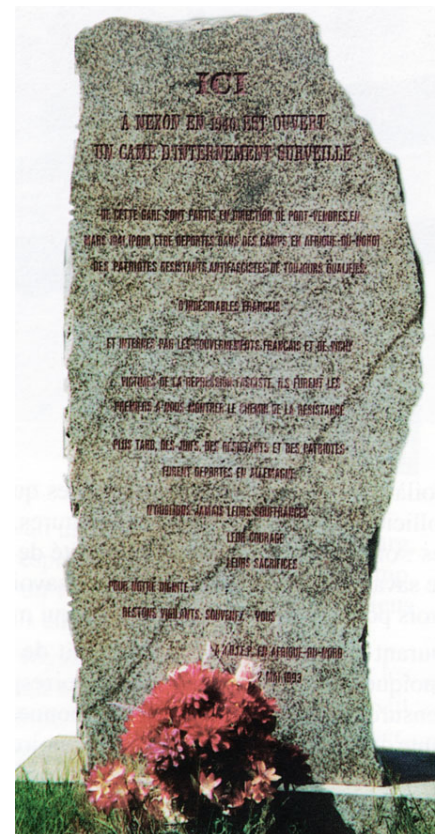 ICI
A NEXON EN 1940 EST OUVERT
UN CAMP D'INTERNEMENT SURVEILLE
DE CETTE GARE SONT PARTIS EN DIRECTION DE PORT-VENDRES, EN
MARS 1941, (POUR ETRE DEPORTES DANS DES CAMPS EN AFRIQUE-DU-NORD)
DES PATRIOTES RESISTANTS ANTIFASCISTES DE TOUJOURS QUALIFIES
"D'INDESIRABLES FRANÇAIS"
ET INTERNES PAR LES GOUVERNEMENTS FRANÇAIS ET DE VICHY
VICTIMES DE LA REPRESSION FASCISTE, ILS FURENT LES
PREMIERS A NOUS MONTRER LE CHEMIN DE LA RESISTANCE
PLUS TARD, DES JUIFS, DES RESISTANTS ET DES PATRIOTES
FURENT DEPORTES EN ALLEMAGNE
N'OUBLIONS JAMAIS LEURS SOUFFRANCES
LEUR COURAGE
LEURS SACRIFICES
POUR NOTRE DIGNITE
RESTONS VIGILANTS, SOUVENEZ-VOUS
EN AFRIQUE-DU-NORD
2 MAI 1993